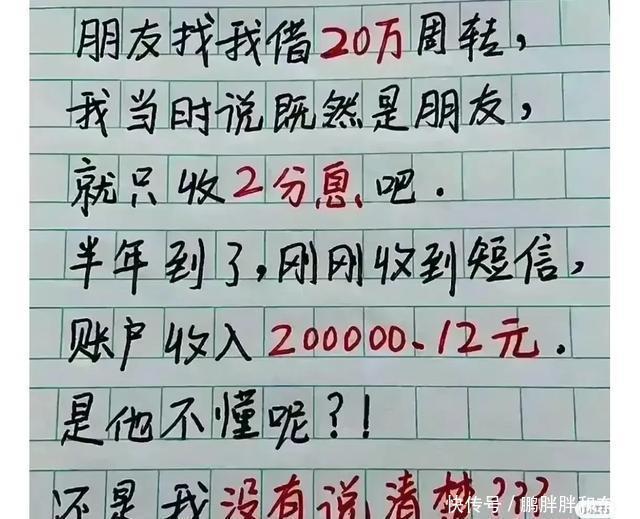 朋友找我借20万周转，
我当时说既然是朋友，
就只收2分息吧.
半年到了，刚刚收到短信，
账户收入200000.12元.
是他不懂呢?!
还是我没有说清楚???
快传号／鹏胖胖和